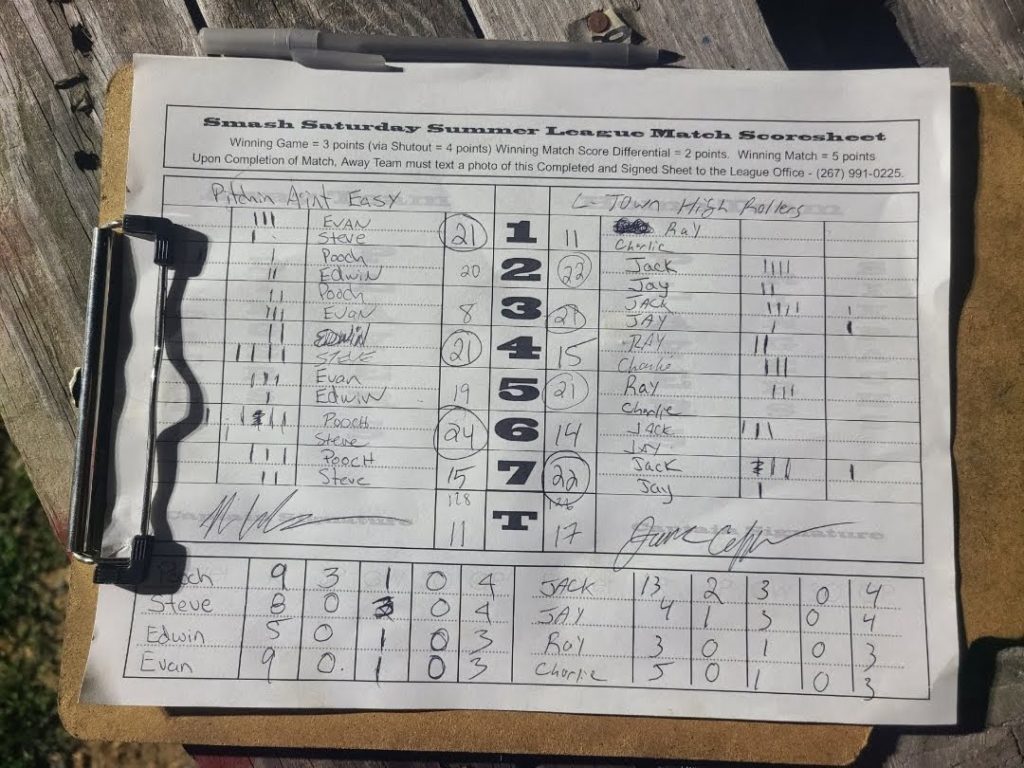 Smash Saturday Summer League Match Scoresheet
Winning Game = 3 points (via Shutout = 4 points) Winning Match Score Differential = 2 points. Winning Match = 5 points
Upon Completion of Match, Away Team must text a photo of this Completed and Signed Sheet to the League Office - (267) 991-0225.
Pitchin Aint Easy L-Town High Rollers
EVAN 21 1 11 Ray
Steve Charlie
Pooch 20 2 22 Jack
Edwin Jay
Pooch 8 3 JACK
Evan JAY
EDWIN 21 4 15 RAY
STEVE Charlie
Evan 19 5 21 Ray
Edwin Charlie
POOCH 24 6 14 Jack
Steve Jay
POOCH 15 7 22 Jack
Steve Jay
128 126
11 T 17
Pooch 9 3 1 0 4 JACK 13 2 3 0 4
Steve 8 0 0 4 JAY 4 1 3 0 4
Edwin 5 0 1 0 3 Ray 3 0 1 0 3
Evan 9 0 1 0 3 Charlie 5 0 1 0 3